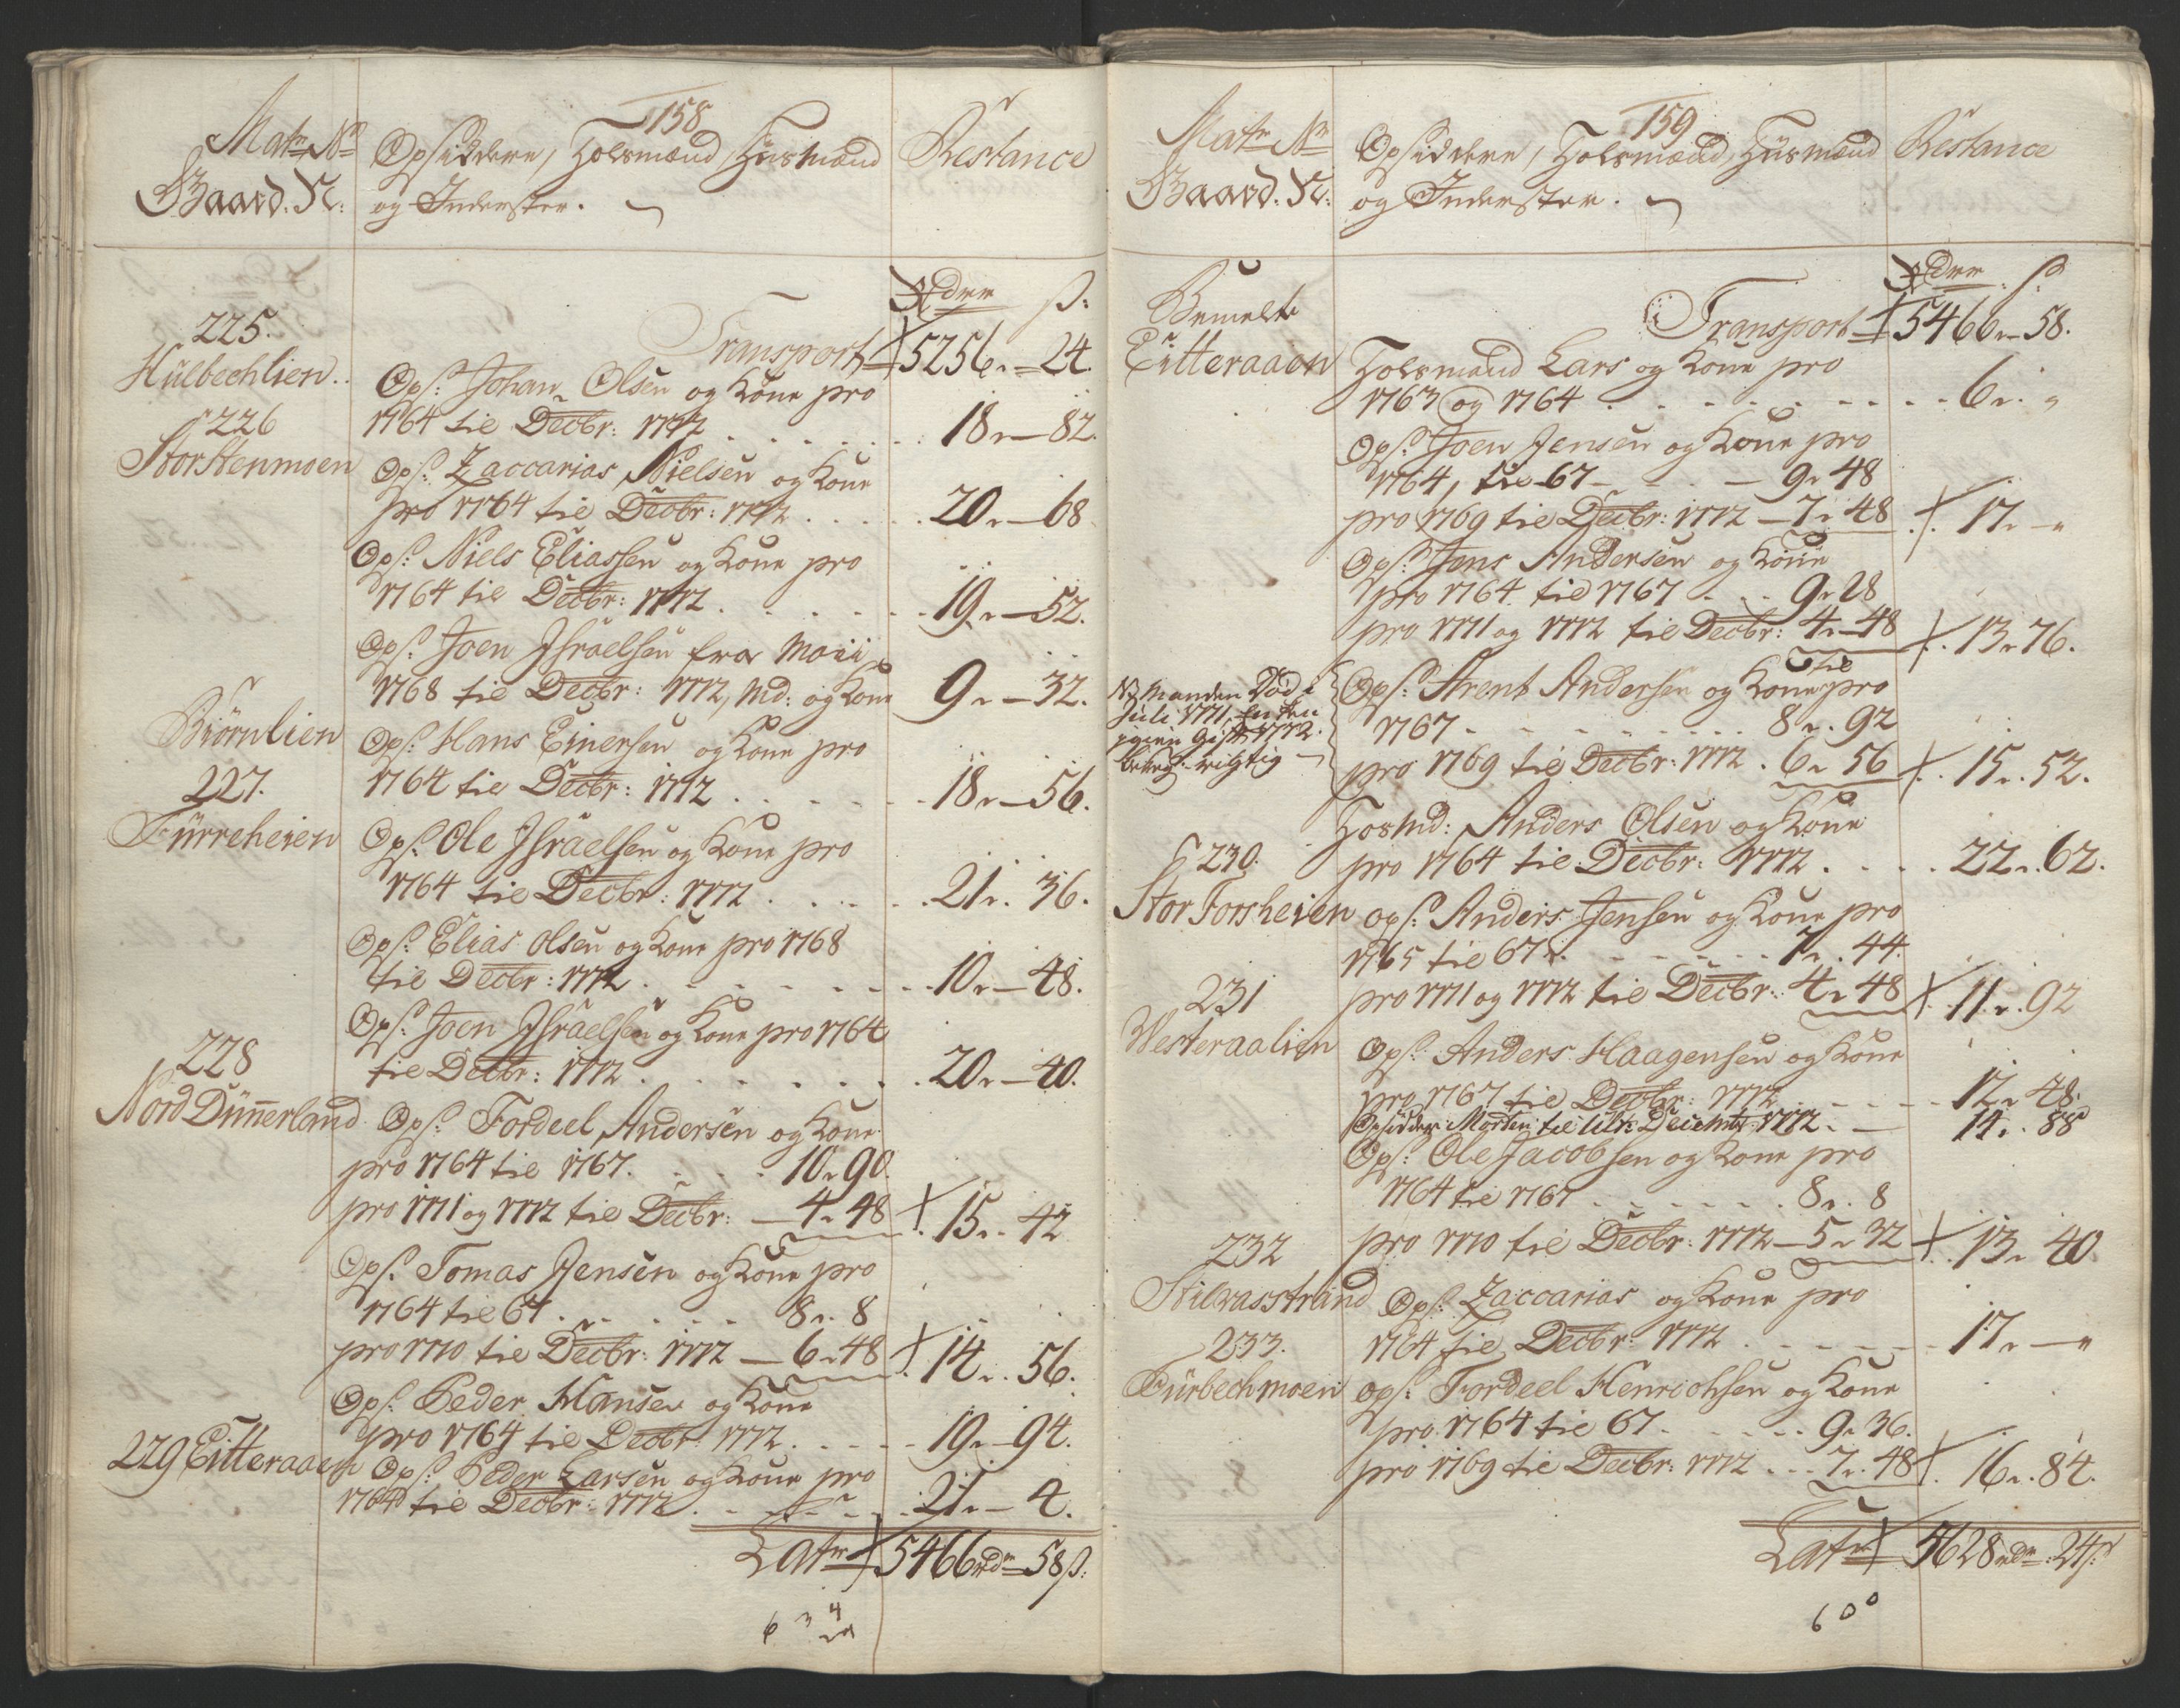 158
Matr: No
Gaard. N:
Opsiddere, Holsmænd, Husmænd
og Inderster.
Restance
Rdrr ß:
Transport 5256 - 24.
225.
Hulbechlien
Ops: Johan Olsen og Kone pro
1764 til Decbr: 1772 . . . . 18 - 82.
226
Stor Stenmoen
Ops: Zaccarias Nielsen og Kone
pro 1764 til Decbr: 1772 . . . . 20 - 68
Ops: Niels Eliassen og Kone pro
1764 til Decbr: 1772 . . . . 19 - 52.
Ops: Joen Jsraelsen fra Maii
1768 til Decbr: 1772, Md: og Kone 9 - 32.
Biörnlien
Ops: Hans Einersen og Kone pro
1764 til Decbr: 1772 . . . . 18 - 56.
227.
Furreheien
Ops: Ole Jsraelsen og Kone pro
1764 til Decbr: 1772 . . . . 21. 36.
Ops: Elias Olsen og Kone pro 1768
til Decbr: 1772 . . . . 10 - 48.
Ops: Joen Jsraelsen og Kone pro 1764
til Decbr: 1772 . . . . 20 - 40.
228
Nord Dunnerland
Ops: Fordeel Andersen og Kone
pro 1764 til 1767. . . . 10. 90.
pro 1771 og 1772 til Decbr: - 4. 48 15. 42
Ops: Tomas Jensen og Kone pro
1764 til 67 . . . . 8. 8
pro 1770 til Decbr: 1772 - 6. 48 14. 56.
Ops: Peder Hansen og Kone
pro 1764 til Decbr: 1772 . . . . 19. 94.
229 Eitteraaen
Ops: Peder Larsen og Kone pro
1764 til Decbr: 1772 . . . . 21 - 4.
Latr 5466 rdr - 58 ß:
6 3 4
159
Matr No
Gaard. N:
Opsiddere, Holsmænd, Husmænd
og Inderster.
Restance
Rdrr ß
Transport 5466 - 58.
Bemelte
Eitteraaen
Holsmand Lars og Kone pro
1763 og 1764 . . . . 6. "
Ops: Joen Jensen og Kone pro
1764, til 67 - - 9. 48
pro 1769 til Decbr: 1772 - 7. 48 17. - "
Ops: Jens Andersen og Kone
pro 1764 til 1767 . . . 9. 28
pro 1771 og 1772 til Decbr: 4. 48 13. 76.
NB Manden Död i
Juli 1771, Enken
igien Gift 1772.
rigtig
Ops: Arent Andersen og Kone pro
til
1767 . . . . 8. 92
pro 1769 til Decbr: 1772 . 6. 56 15. 52.
Hosmd: Anders Olsen og Kone
pro 1764 til Decbr: 1772 . . . . 22. 62.
230.
Stor Forsheien
Ops: Anders Jensen og Kone pro
1765 til 67 . . . . 7. 44.
pro 1771 og 1772 til Decbr: 4. 48 11. 92
231
Westeraalien
Ops: Anders Haagensen og Kone
pro 1767 til Decbr: 1772 . . . . 12. 48.
Opsidder Morten til Ult: Decembr 1772. - 14. 88
Ops: Ole Jacobsen og Kone pro
1764 til 1767 . . . . 8. 8
pro 1770 til Decbr: 1772 - 5. 32 13. 40
232
Stilvasstrand
Ops: Zaccarias og Kone pro
1764 til Decbr: 1772 . . . . 17. - "
233.
Ops: Fordeel Henrichsen og Kone
pro 1764 til 67. . . . 9. 36.
pro 1769 til Decbr: 1772 . . . 7. 48 16. 84.
Latr 5628 rdr: 24 ß
6 0 0